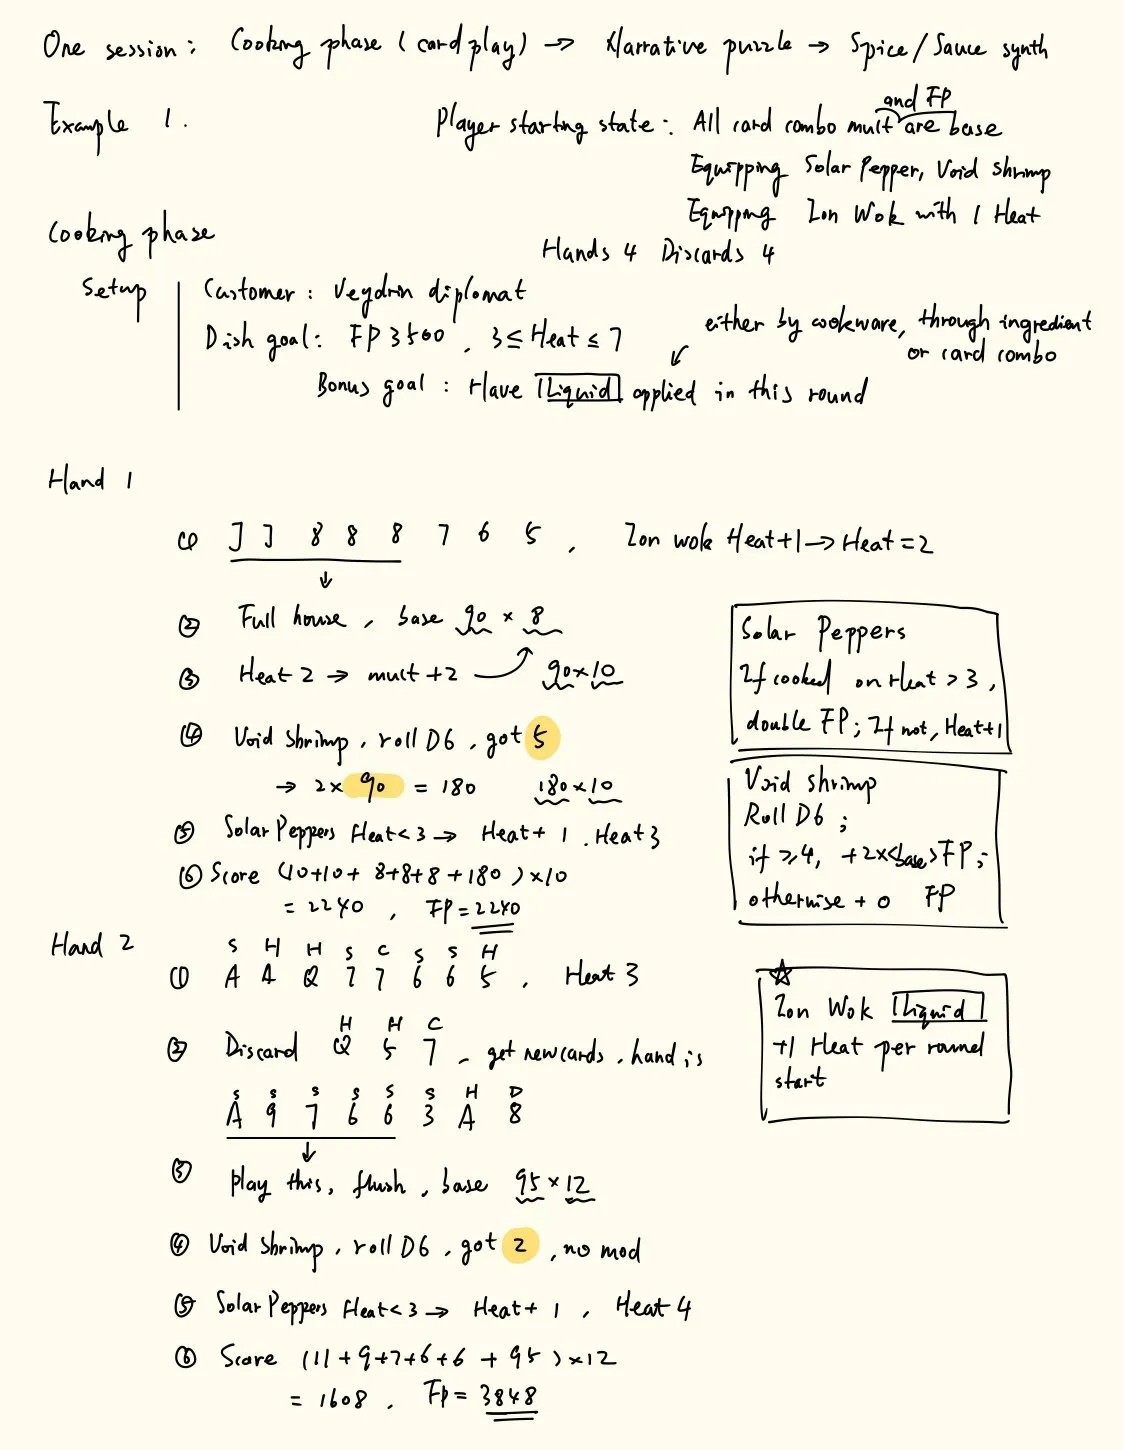 One session: Cooking phase (card play) → Narrative puzzle → Spice/Sauce synth
Example 1.
Player starting state: All card combo mult and FP are base
Equipping Solar Pepper, Void Shrimp
Equipping Ion Wok with 1 Heat
Hands 4 Discards 4
Cooking phase
Setup
Customer: Veydrin diplomat
Dish goal: FP 3500, 3 ≤ Heat ≤ 7
either by cookware, through ingredient
or card combo
Bonus goal: Have [Liquid] applied in this round
Hand 1
① J J 8 8 8 7 6 5, Ion wok Heat+1 → Heat = 2
↓
② Full house, base 90 × 8
③ Heat 2 → mult +2 90×10
④ Void Shrimp, roll D6, got 5
→ 2 × 90 = 180 180×10
⑤ Solar Peppers Heat<3 → Heat + 1. Heat 3
⑥ Score (10+10+8+8+8+180)×10
= 2240, FP = 2240
Solar Peppers
If cooked on Heat > 3,
double FP; If not, Heat+1
Void Shrimp
Roll D6;
if ≥4, +2×<base>FP;
otherwise + 0 FP
Hand 2
S H H S C S S H
① A A Q 7 7 6 6 5, Heat 3
H H C
② Discard Q 5 7, get new cards, hand is
S S S S S S H D
A 9 7 6 6 3 A 8
↓
③ play this, flush, base 95 × 12
④ Void Shrimp, roll D6, got 2, no mod
⑤ Solar Peppers Heat<3 → Heat + 1, Heat 4
⑥ Score (11+9+7+6+6 + 95)×12
= 1608, FP = 3848
☆
Ion Wok [Liquid]
+1 Heat per round
start